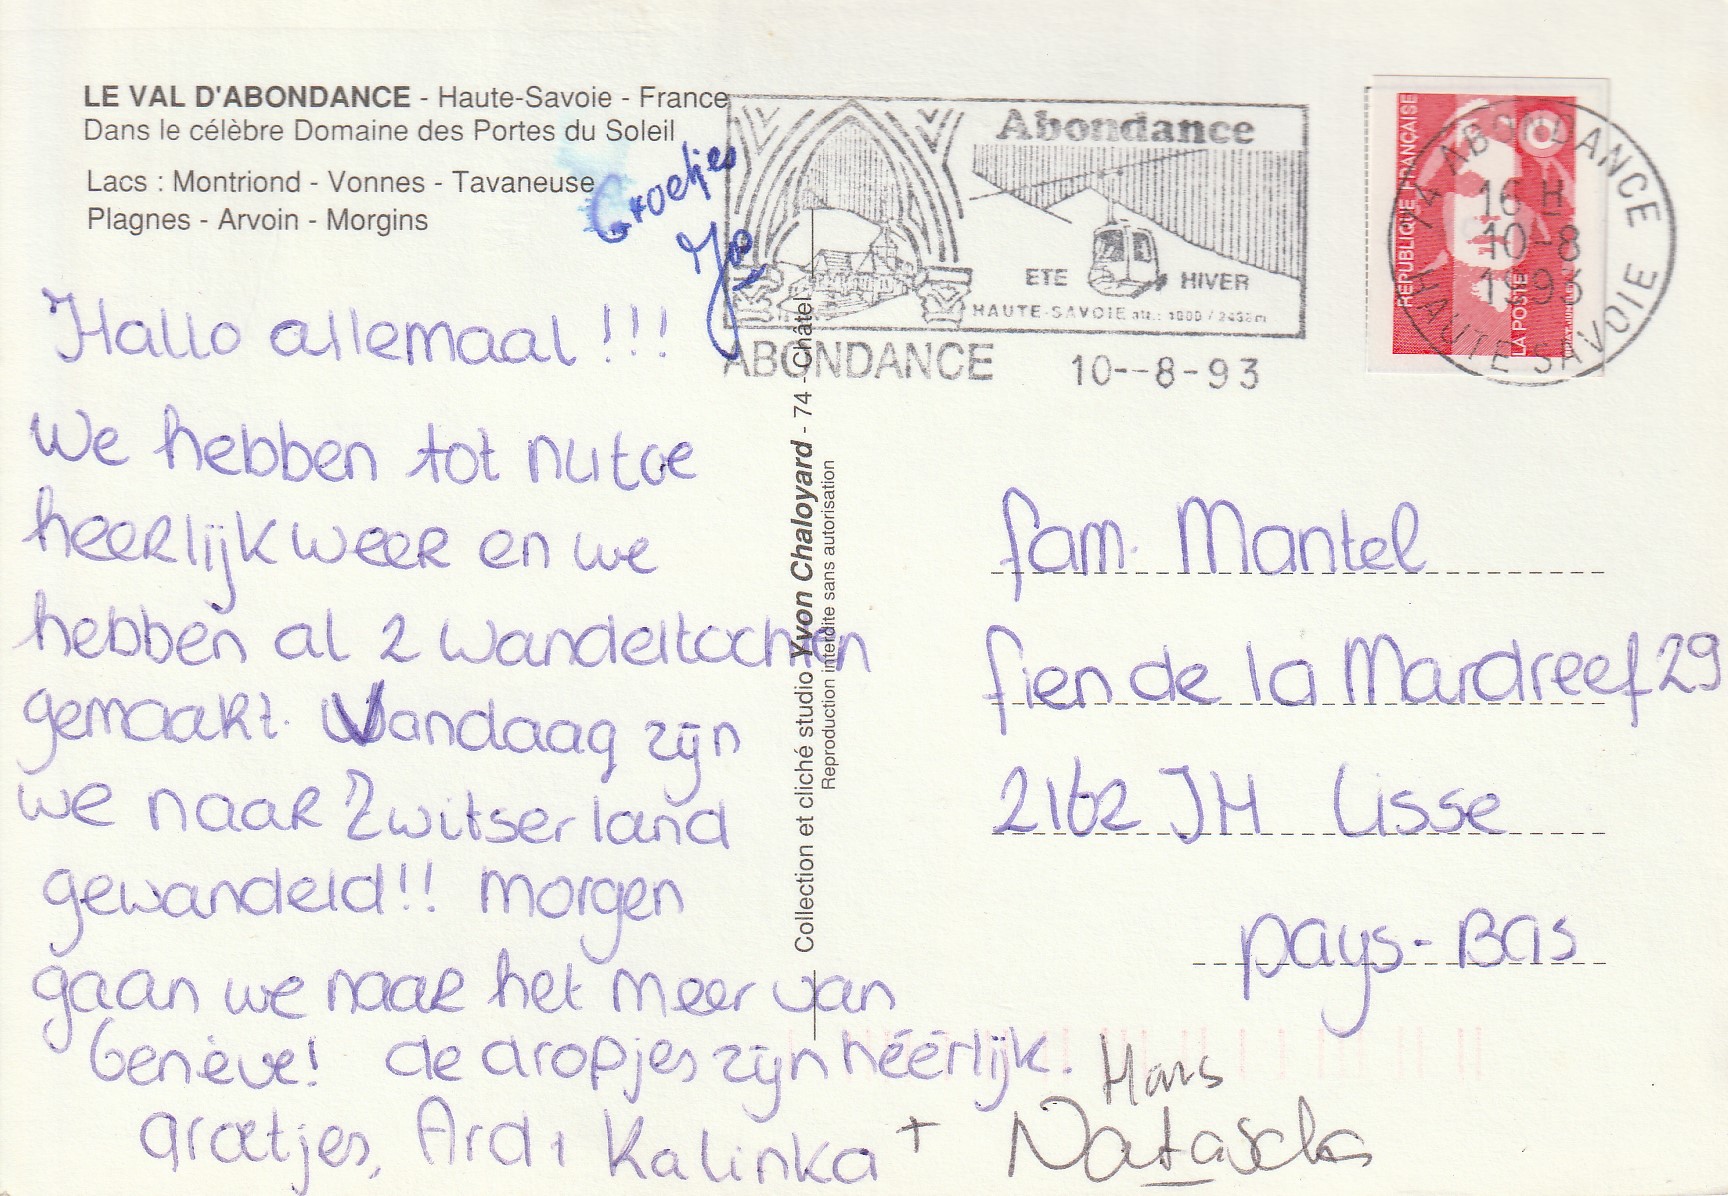 LE VAL D'ABONDANCE - Haute-Savoie - France
Dans le célèbre Domaine des Portes du Soleil
Lacs : Montriond - Vonnes - Tavaneuse
Plagnes - Arvoin - Morgins
Groetjes
Hallo allemaal !!!
We hebben tot nutoe
heerlijk weer en we
hebben al 2 wandeltochten
gemaakt. Vandaag zijn
we naar Zwitserland
gewandeld!! morgen
gaan we naar het meer van
Genève! de dropjes zijn héérlijk.
groetjes, Ardi Kalinka + Natascha
Hans
Collection et cliché studio Yvon Chaloyard - 74 - Châtel
Reproduction interdite sans autorisation
Abondance
ETE HIVER
HAUTE-SAVOIE alt.: 1000 / 2438m
ABONDANCE 10--8-93
RÉPUBLIQUE FRANÇAISE
LA POSTE
74 ABONDANCE
16 H
10-8
1993
HAUTE SAVOIE
fam. Mantel
fien de la Mardreef 29
2162 JH Lisse
pays-Bas